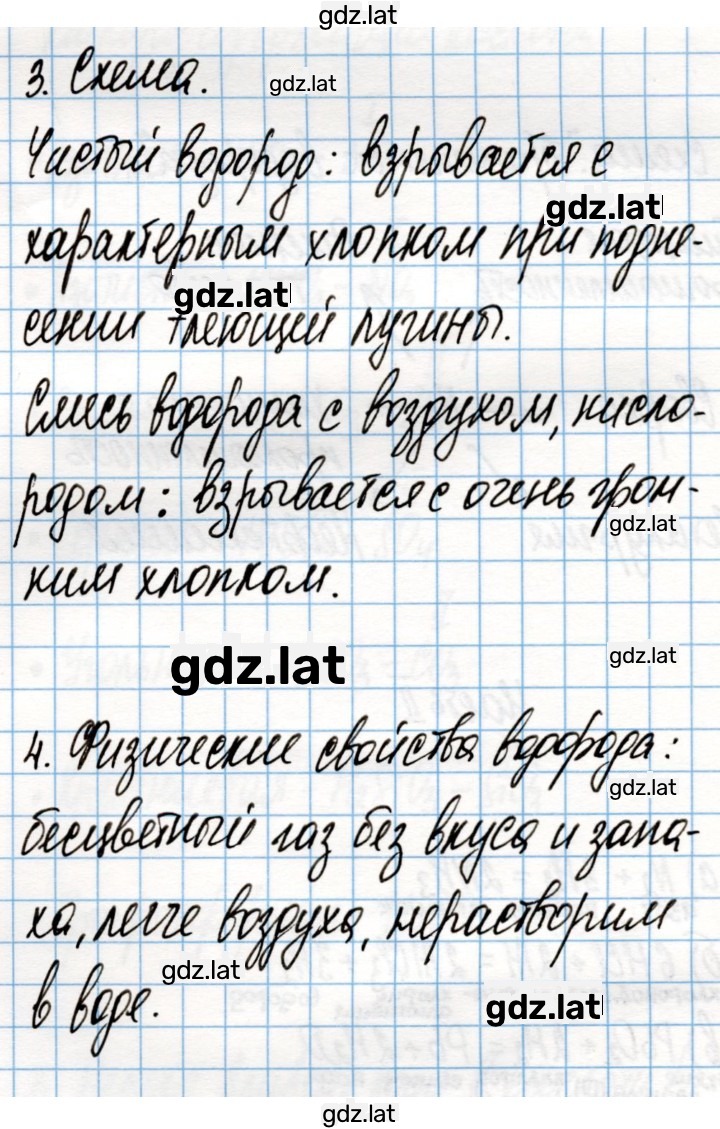 gdz.lat
3. Схема. gdz.lat
Чистый водород: взрывается с
gdz.lat
характерным хлопком при подне-
gdz.lat
сении тлеющей лучины.
Смесь водорода с воздухом, кисло-
родом: взрывается с очень гром-
gdz.lat
ким хлопком.
gdz.lat gdz.lat
4. Физические свойства водорода:
gdz.lat
бесцветный газ без вкуса и запа-
ха, легче воздуха, нерастворим
gdz.lat
в воде. gdz.lat
gdz.lat